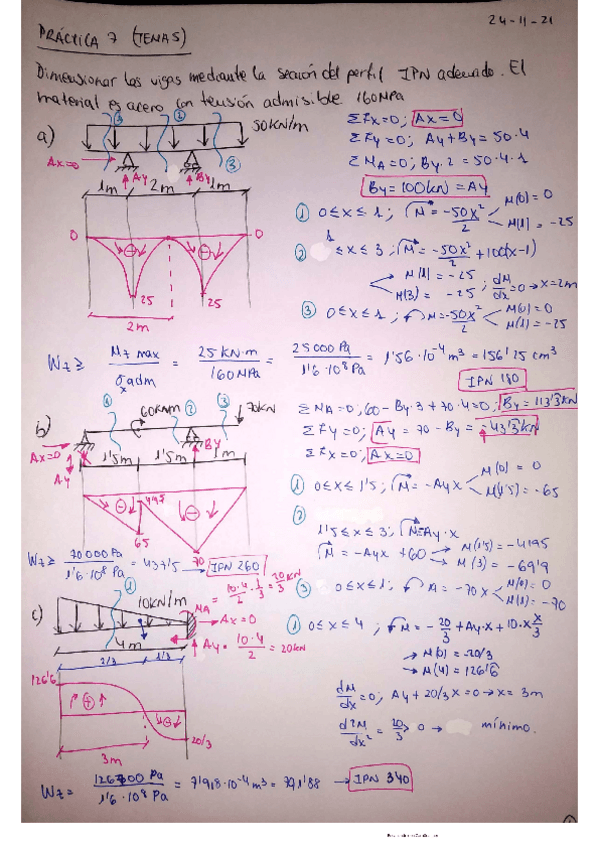 24-11-21
PRÁCTICA 7 (TENAS)
Dimensionar las vigas mediante la sección del perfil IPN adecuado. El
material es acero con tensión admisible 160MPa
a)
① ② ③
50kN/m
Ax=0
Ay
By
1m 2m 1m
0 0
25 25
2m
ΣFx=0; Ax=0
ΣFy=0; Ay+By=50·4
ΣMA=0; By·2=50·4·1
By=100kN=Ay
① 0≤x≤1; M=-50x²/2 M(0)=0
M(1)=-25
② 1≤x≤3; M=-50x²/2+100(x-1)
M(1)=-25
M(3)=-25; dM/dx=0→x=2m
③ 0≤x≤1; M=-50x²/2 M(0)=0
M(1)=-25
Wz≥ Mz max/σx adm = 25KN·m/160MPa = 25000Pa/1'6·10⁸Pa = 1'56·10⁻⁴m³=156'25 cm³
IPN 180
b)
① ② ③
60KNm
70KN
Ax=0
Ay
By
1'5m 1'5m 1m
65
70
ΣMA=0; 60-By·3+70·4=0; By=113'3KN
ΣFy=0; Ay=70-By=-43'3KN
ΣFx=0; Ax=0
① 0≤x≤1'5; M=-Ayx M(0)=0
M(1'5)=-65
② 1'5≤x≤3; M=Ay·x
M=-Ayx+60 M(1'5)=-4'95
M(3)=-69'9
③ 0≤x≤1; M=-70x M(0)=0
M(1)=-70
Wz≥ 70000Pa/1'6·10⁸Pa = 437'5 → IPN 260
c)
①
10KN/m
MA = 10·4/2·1/3=20/3 KN
Ax=0
Ay=10·4/2=20KN
4m
2/3 1/3
126'6
20/3
3m
① 0≤x≤4; M=-20/3+Ay·x+10·x·x/3
→M(0)=-20/3
→M(4)=126'6
dM/dx=0; Ay+20/3x=0→x=3m
d²M/dx²=20/3>0→ mínimo.
Wz= Pa/1'6·10⁸Pa = 7'918·10⁻⁴m³=791'88 → IPN 340